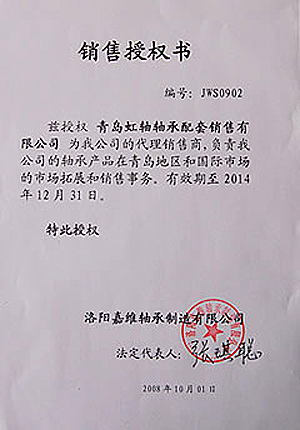 销售授权书
编号：JWS0902
兹授权 青岛虹轴轴承配套销售有
限公司 为我公司的代理销售商，负责我
公司的轴承产品在青岛地区和国际市场
的市场拓展和销售事务。有效期至 2014
年 12 月 31 日。
特此授权
洛阳嘉维轴承制造有限公司
法定代表人：张琪聪
2008 年 10 月 01 日